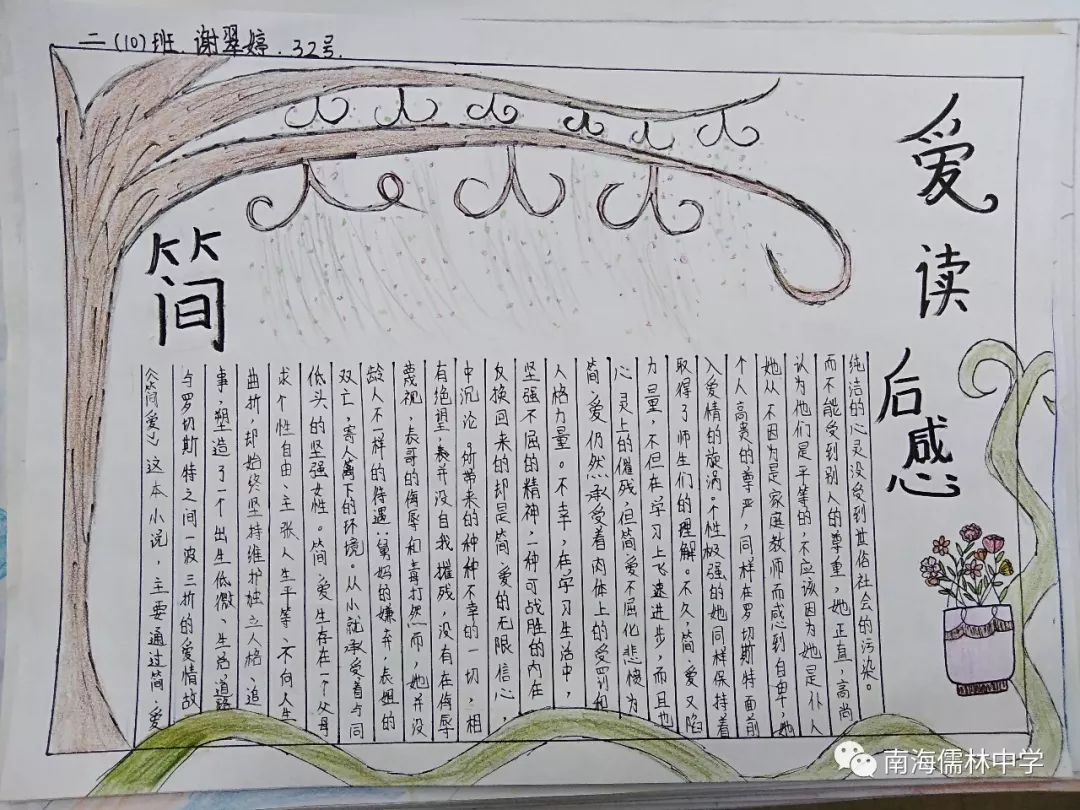 二(10)班.谢翠婷.32号.
简
爱
读
后
感
《简爱》这本小说，主要通过简.爱
与罗切斯特之间一波三折的爱情故
事，塑造了一个出生低微、生活道路
曲折，却始终坚持维护独立人格、追
求个性自由、主张人生平等、不向人生
低头的坚强女性。简.爱生存在一个父母
双亡，寄人篱下的环境。从小就承受着与同
龄人不一样的待遇：舅妈的嫌弃，表姐的
蔑视，表哥的侮辱和毒打然而，她并没
有绝望，并没自我摧残，没有在侮辱
中沉沦。所带来的种种不幸的一切，相
反换回来的却是简.爱的无限信心，
坚强不屈的精神，一种可战胜的内在
人格力量。不幸，在学习生活中，
简.爱仍然承受着肉体上的受罚和
心灵上的催残，但简.爱不屈化悲愤为
力量，不但在学习上飞速进步，而且也
取得了师生们的理解。不久，简.爱又陷
入爱情的旋涡。个性极强的她同样保持着
个人高贵的尊严，同样在罗切斯特面前
她从不因为是家庭教师而感到自卑，她
认为他们是平等的，不应该因为她是仆人
而不能受到别人的尊重，她正直，高尚
纯洁的心灵没受到世俗社会的污染。
南海儒林中学